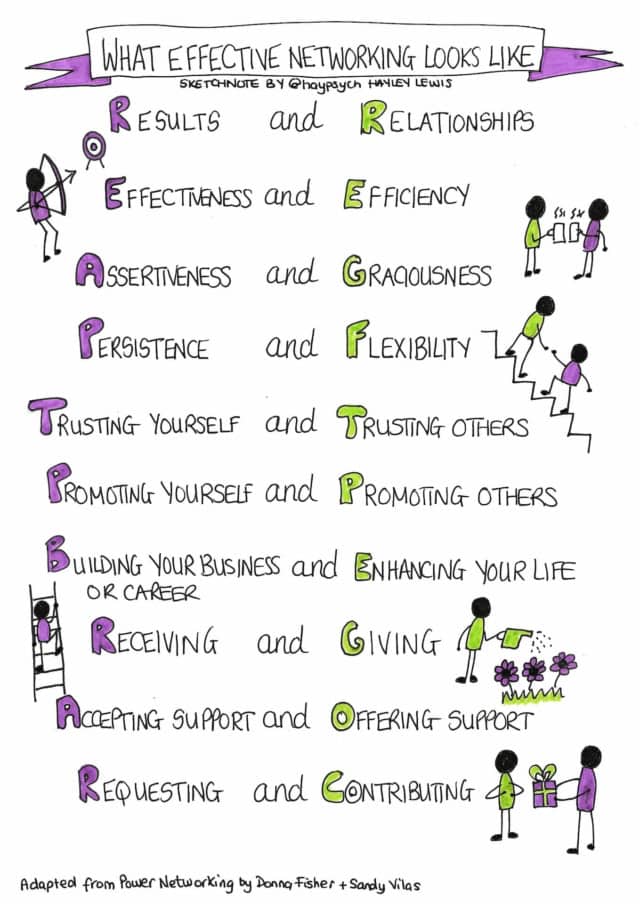 WHAT EFFECTIVE NETWORKING LOOKS LIKE
SKETCHNOTE BY @haypsych HAYLEY LEWIS
RESULTS and RELATIONSHIPS
EFFECTIVENESS and EFFICIENCY
ASSERTIVENESS and GRACIOUSNESS
PERSISTENCE and FLEXIBILITY
TRUSTING YOURSELF and TRUSTING OTHERS
PROMOTING YOURSELF and PROMOTING OTHERS
BUILDING YOUR BUSINESS and ENHANCING YOUR LIFE
OR CAREER
RECEIVING and GIVING
ACCEPTING SUPPORT and OFFERING SUPPORT
REQUESTING and CONTRIBUTING
Adapted from Power Networking by Donna Fisher + Sandy Vilas